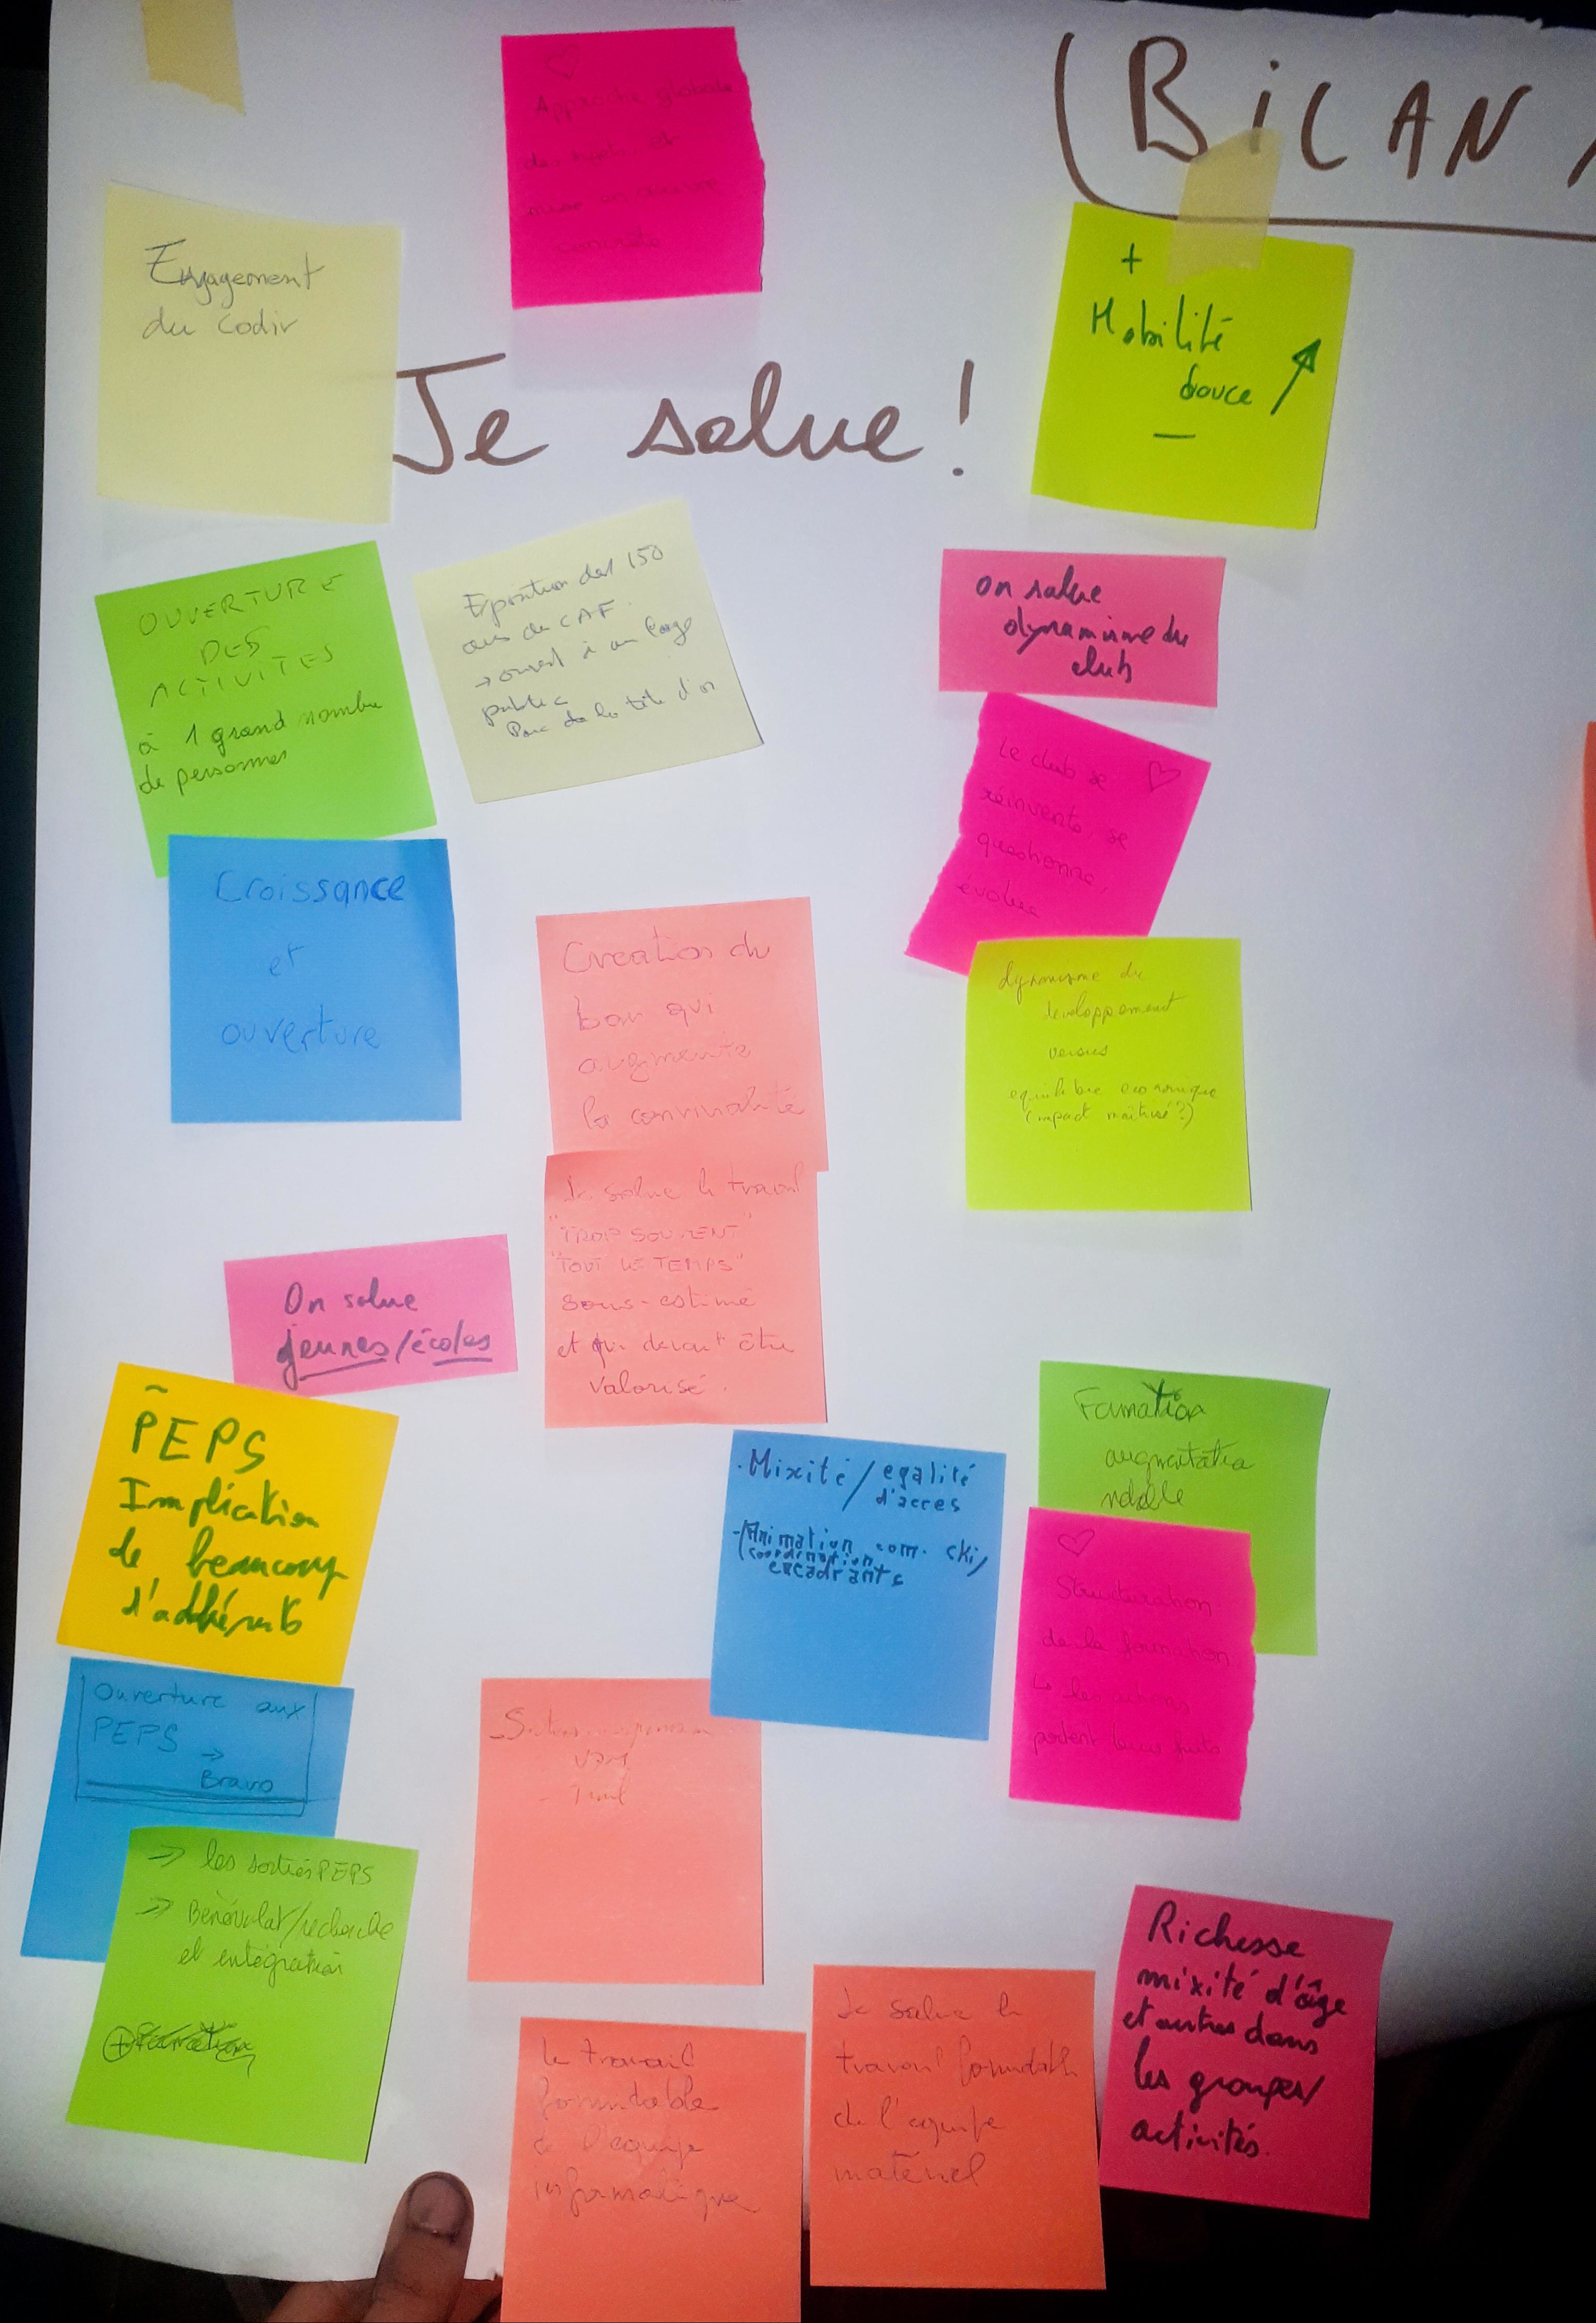 BILAN
♡
Approche globale
et
mise en œuvre
concrète
Engagement
du Codir
+
Mobilité
douce ↗
—
Je salue !
OUVERTURE
DES
ACTIVITES
à 1 grand nombre
de personnes
Exposition des 150
ans du CAF
→ ouvert à un large
public
Parc de la tête d'or
On salue
dynamisme du
club
Le club se ♡
réinvente, se
questionne,
évolue
Croissance
et
ouverture
Creation du
bar qui
augmente
la convivialité
dynamisme du
developpement
versus
equilibre economique
(impact maitrisé ?)
Je salue le travail
"TROP SOUVENT"
"TOUT LE TEMPS"
sous-estimé
et qui devrait être
valorisé.
On salue
jeunes/écoles
PEPS
Implication
de beaucoup
d'adhérents
. Mixité / egalité
d'acces
- Animation com. ski,
(coordination
encadrants
Formation
augmentation
♡
Structuration
de la formation
↳ les actions
portent leurs fruits
Ouverture aux
PEPS →
Bravo
⇒ les sorties PEPS
⇒ Bénévolat/recherche
et intégration
+ Formation
le travail
formidable
de l'equipe
informatique
Je salue le
travail formidable
de l'equipe
matériel
Richesse
mixité d'âge
et autres dans
les groupes/
activités.